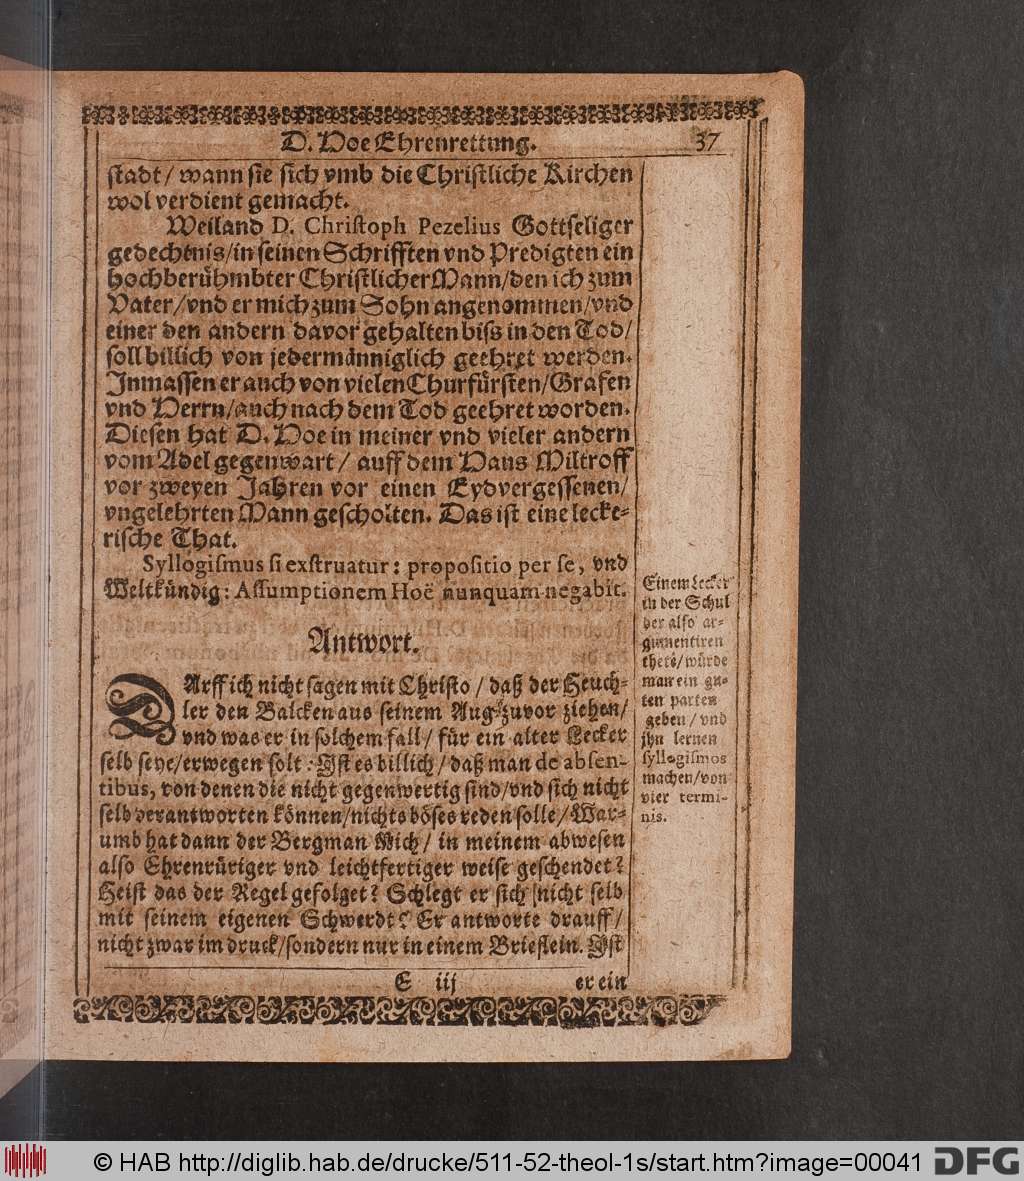 D. Hoe Ehrenrettung. 37
stadt/ wann sie sich vmb die Christliche Kirchen
wol verdient gemacht.
Weiland D. Christoph Pezelius Gottseliger
gedechtnis/in seinen Schrifften vnd Predigten ein
hochberühmbter Christlicher Mann/den ich zum
Vater/vnd er mich zum Sohn angenommen/vnd
einer den andern davor gehalten biß in den Tod/
soll billich von jedermänniglich geehret werden.
Inmassen er auch von vielen Churfürsten/Grafen
vnd Herrn/auch nach dem Tod geehret worden.
Diesen hat D. Hoe in meiner vnd vieler andern
vom Adel gegenwart/ auff dem Haus Miltroff
vor zweyen Jahren vor einen Eydvergessenen/
vngelehrten Mann gescholten. Das ist eine lecke-
rische That.
Syllogismus si exstruatur: propositio per se, vnd
Weltkündig: Assumptionem Hoë nunquam negabit.
Antwort.
DArff ich nicht sagen mit Christo/ daß der Heuch-
ler den Balcken aus seinem Aug zuvor ziehen/
vnd was er in solchem fall/ für ein alter Lecker
selb seye/erwegen solt: Ist es billich/ daß man de absen-
tibus, von denen die nicht gegenwertig sind/vnd sich nicht
selb verantworten können/nichts böses reden solle/War-
umb hat dann der Bergman Mich/ in meinem abwesen
also Ehrenrüriger vnd leichtfertiger weise geschendet?
Heist das der Regel gefolget? Schlegt er sich nicht selb
mit seinem eigenen Schwerdt? Er antworte drauff/
nicht zwar im druck/sondern nur in einem Brieflein. Ist
E iij er ein
Einem Lecker
in der Schul
der also ar-
gumentiren
thete/würde
man ein gu-
ten parten
geben/vnd
jhn lernen
syllogismos
machen/von
vier termi-
nis.
© HAB http://diglib.hab.de/drucke/511-52-theol-1s/start.htm?image=00041 DFG